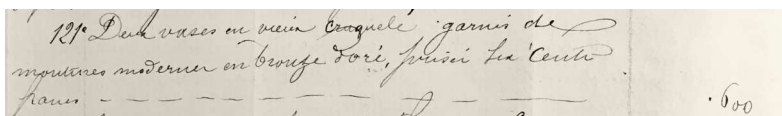 121° Deux vases en vieux craquelé garnis de
montures modernes en bronze doré, prisés six cents
francs — — — — — — — — — 600